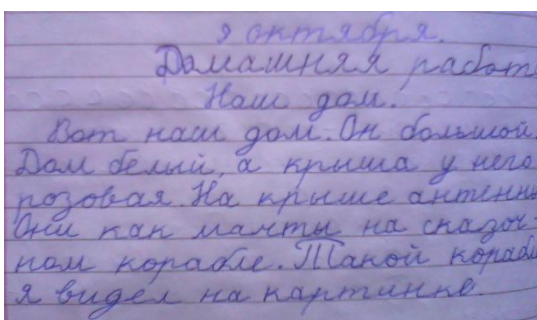 9 октября.
Домашняя работ
Наш дом.
Вот наш дом. Он большой.
Дом белый, а крыша у него
розовая. На крыше антенны
Они как мачты на сказоч-
ном корабле. Такой корабль
я видел на картинке.